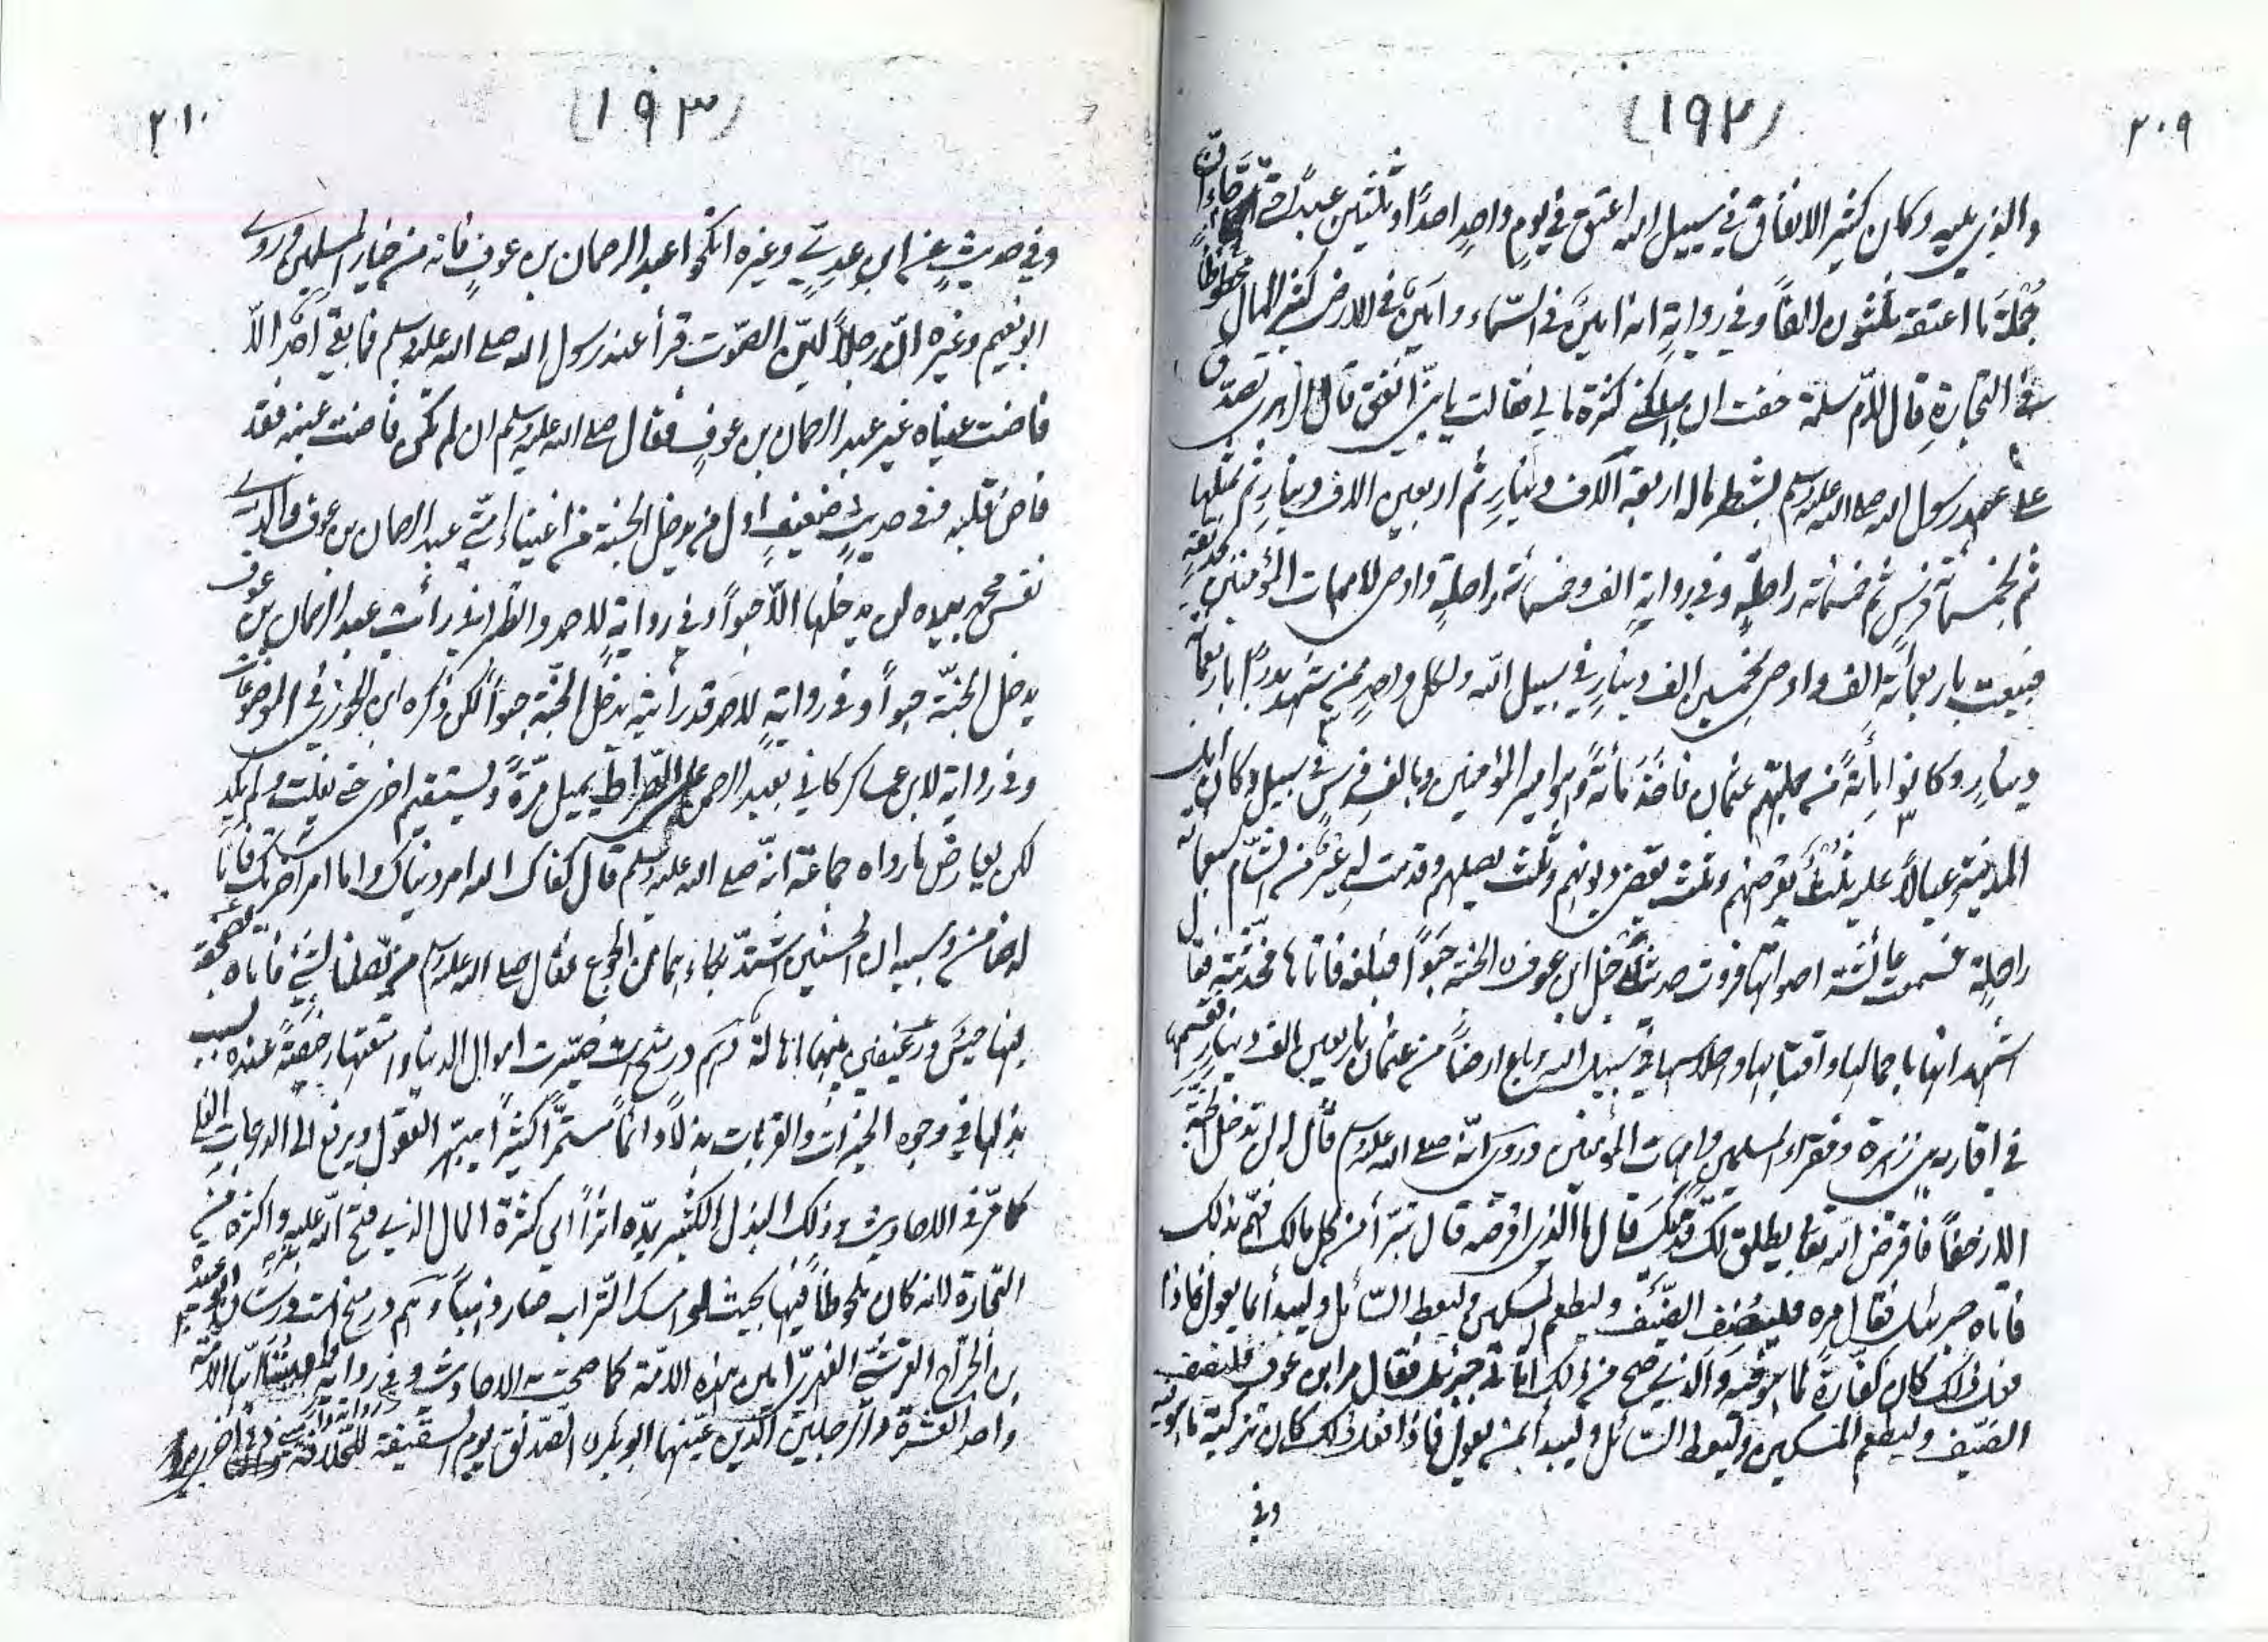 ٢٠٩
(١٩٢)
والذي يليه وكان كثير الانفاق في سبيل الله اعتق في يوم واحد احدًا وثلثين عبدًا حتى جاء ان
جُملَةَ ما اعتقه ثلثون الفًا وفي رواية انه امين في السّماء وامين في الارض كثير المال محظوظًا
في التجارةِ قال لامّ سلمة خفت ان يهلكني كثرة مالي فقالت يا بنيّ انفق قال الزهري تصدّق
على عهد رسول الله صلى الله عليه وسلم بشطر ماله اربعة آلاف دينارٍ ثم اربعين الاف دينارٍ ثم بمثلها
ثم بخمسمائة فرسٍ ثم خمسمائة راحلةٍ وفي روايةٍ الف وخمسمائة راحلةٍ واوصى لامهات المؤمنين بحديقةٍ
فبيعت باربعمائة الف واوصى بخمسين الف دينارٍ في سبيل الله ولكل واحدٍ ممن شهد بدرًا باربعمائة
دينارٍ وكانوا مائةً فيهم عثمان فاخذ مائةً وهو امير المؤمنين وبالف فرسٍ في سبيل وكان اهل
المدينة عيالاً عليه ثلثٌ يقرضهم وثلث يقضي ديونهم وثلث يصلهم وقدمت له عيرٌ من الشّام سبعمائة
راحلة فسمعت عائشة اصواتها فروت حديث يدخل ابن عوفٍ الجنة حَبْوًا فبلغه فاتاها فحدّثته فقال
اشهد انها باحمالها واقتابها واحلاسها في سبيل الله وباع ارضًا من عثمان باربعين الف دينارٍ فقسمها
في اقاربه بني زهرة وفقراء المسلمين وامهات المؤمنين وروى انّه صلى الله عليه وسلم قال له لن تدخل الجنّة
الا زحفًا فاقرض الله تعا يطلق لك قدميكَ قال ما الذي اقرضه قال تبرّأ من كل مالك فهمّ بذلك
فاتاه جبرئيل فقال مره فليُضِفِ الضّيف وليطعم المسكين وليعط السّائل وليبدأ بما يعول فاذا
فعل ذلك كان كفّارةً لما هو فيه والّذي صح من ذلك اتاني جبرئيل فقال مر ابن عوفٍ فليضف
الضّيف وليطعم المسكين وليعط السّائل وليبدأ بمن يعول فاذا فعل ذلك كان تزكيةً ما هو فيه
وفي
٢١٠
(١٩٣)
وفي حديثٍ عند ابن عدي وغيره انكحوا عبد الرحمان بن عوفٍ فانه من خيار المسلمين وروى
ابو نعيم وغيره انّ رجلاً ليّن الصّوت قرأ عند رسول الله صلى الله عليه وسلم فما بقي احَد الاّ
فاضت عيناه غير عبد الرحمان بن عوفٍ فقال صلى الله عليه وسلم ان لم تكن فاضت عينه فقد
فاض قلبه وفي حديثٍ ضعيفٍ اول من يدخل الجنة من اغنياء امّتي عبد الرحمان بن عوف والذي
نفس محمد بيده لن يدخلها الاّ حبواً وفي رواية لاحمد والطبراني رأيت عبد الرحمان بن عوف
يدخل الجنّة حبواً وفي رواية لاحمد قد رأيته يدخل الجنّة حبواً لكن ذكره ابن الجوزي في الموضوعات
وفي رواية لابن عساكر كاني بعبد الرحمن على الصّراط يميل مرّةً ويستقيم اخرى حتى يفلت ولم يكد
لكن يعارض ما رواه جماعة انّه صلى الله عليه وسلم قال كفاك الله امر دنياك واما امر آخرتك فانا
لها ضامن وسببه ان الحسنين اشتدّ بكاءهما من الجوع فقال صلى الله عليه وسلم من يصلنا بشيءٍ فاتاه بصحفة
فيها حَيسٌ ورغيفين بينهما اهالة وهم در شرح است خُيّرت اموال الدنيا وامتعتها رخيصةً عنده بسبب
بذلها في وجوه الخيرات والقربات بذلاً دائمًا مستمرًّا كثيرًا يبهر العقول ويرفع الى الدرجات العلى
كما مرّ في الاحاديث وذلك البذل الكثير يدّه اثرًا الى كثرة المال الذي فتح الله عليه واكثره من
التّجارة لانه كان محظوظاً فيها بحيث لو امسك التّراب صار ذهباً وهم در شرح است در شان ابو عبيدة
بن الجرّاح القرشيّ الفهريّ امين هذه الامّة كما صحّت به الاحاديث وفي رواية الامّة
واحد العشرة والرجلين الّذين عيّنهما ابو بكرٍ الصّديق يوم السقيفة للخلافة